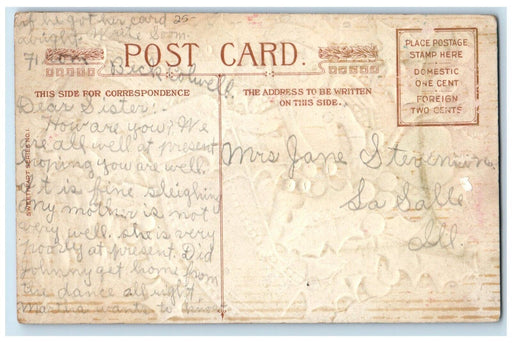 if he got her card 25-
Write soon.
71
POST CARD.
THIS SIDE FOR CORRESPONDENCE
THE ADDRESS TO BE WRITTEN
ON THIS SIDE.
PLACE POSTAGE
STAMP HERE
DOMESTIC
ONE CENT
FOREIGN
TWO CENTS
Dear Sister:-
How are you? We
are all well at present
hoping you are well.
It is fine sleighing
my mother is not
very well. she is very
poorly at present. Did
Johnny get home from
the dance all right
Martha wants to know
Mrs Jane Stevenson
La Salle
Ill.